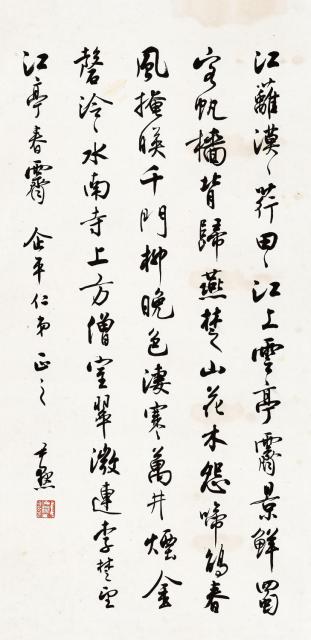 江蘺漠〻荇田〻江上雲亭霽景鮮蜀
客帆檣背歸燕楚山花木怨啼鵑春
風掩暎千門柳晚色淒寒萬井煙金
磬泠〻水南寺上方僧室翠微連李楚望
江亭春霽 企平仁弟正之 尹默